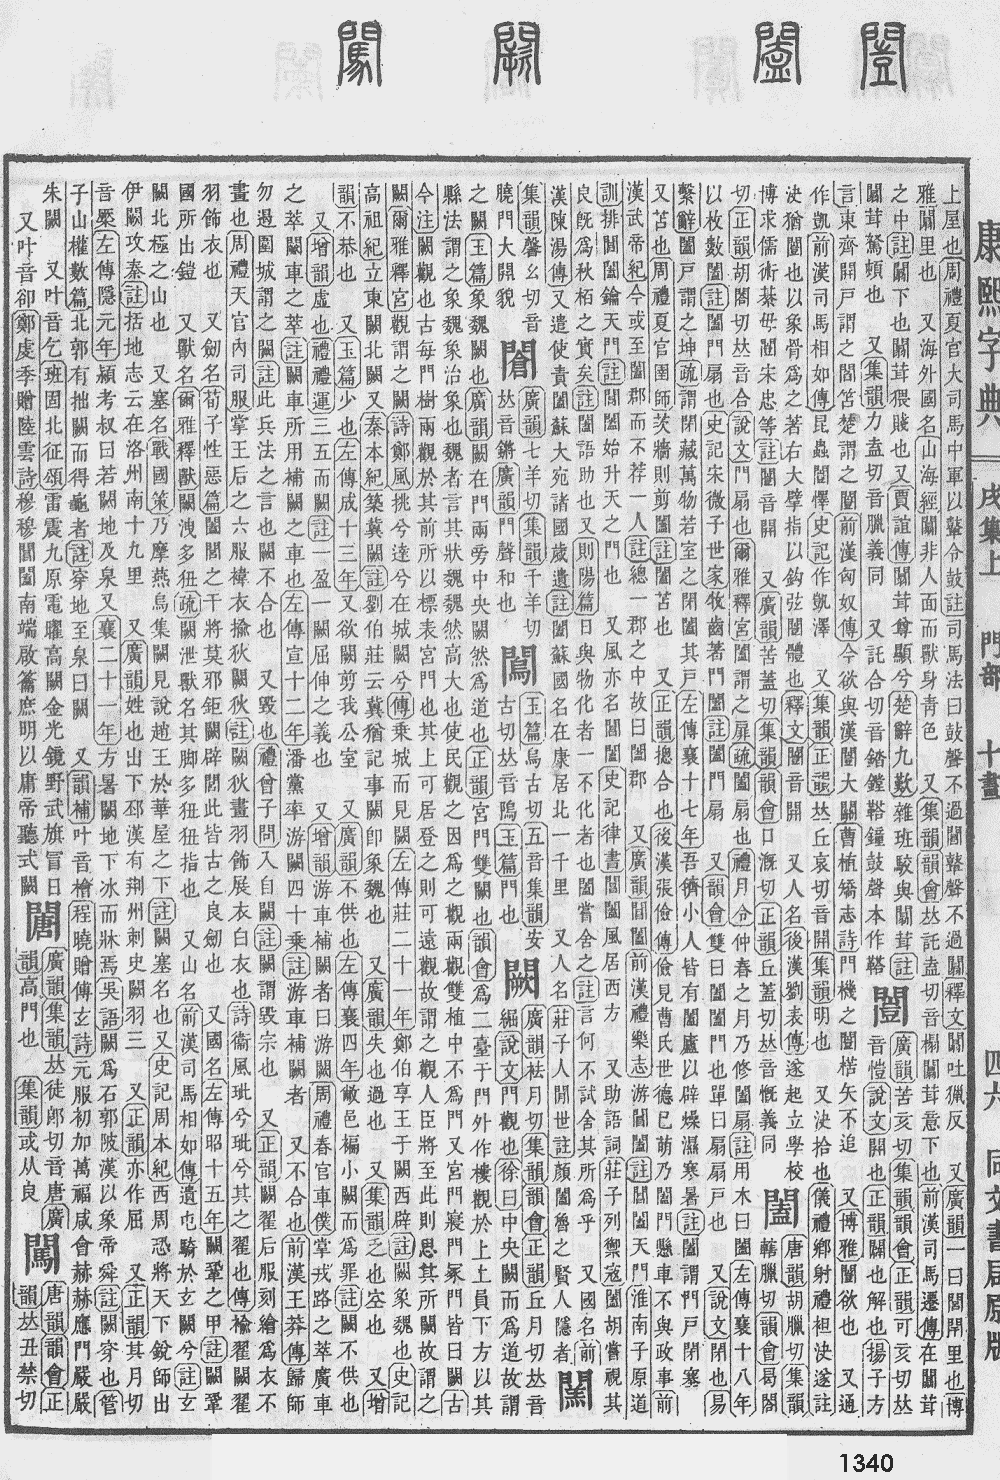 闓 闔 闕 闖
康熙字典 戌集上 門部 十畫 四六 同文書局原版
上屋也周禮夏官大司馬中軍以鼙令鼓註司馬法曰鼓聲不過閶鼙聲不過闒釋文闒吐獵反 又廣韻一曰閭閈里也博
雅闒里也 又海外國名山海經闒非人面而獸身靑色 又集韻韻會𠀤託盍切音榻闒茸意下也前漢司馬遷傳在闒茸
之中註闒下也闒茸猥賤也又賈誼傳闒茸尊顯兮楚辭九歎雜班駮與闒茸註
闒茸駑頓也 又集韻力盍切音臘義同 又託合切音錔鏜鞳鐘鼓聲本作鞳
闓
廣韻苦亥切集韻韻會正韻可亥切𠀤
音愷說文開也正韻闢也解也揚子方
言東齊開戸謂之闓苫楚謂之闓前漢匈奴傳今欲與漢闓大關曹植矯志詩門機之闓楛矢不追 又博雅闓欲也 又通
作凱前漢司馬相如傳昆蟲闓懌史記作凱澤 又集韻正韻𠀤丘哀切音開集韻明也 又決拾也儀禮鄕射禮袒決遂註
決猶闓也以象骨爲之著右大擘指以鉤弦闓體也釋文闓音開 又人名後漢劉表傳遂起立學校
博求儒術綦毋闓宋忠等註闓音開 又廣韻苦蓋切集韻韻會口漑切正韻丘蓋切𠀤音慨義同
闔
唐韻胡臘切集韻
轄臘切韻會曷閤
切正韻胡閤切𠀤音合說文門扇也爾雅釋宮闔謂之扉疏闔扇也禮月令仲春之月乃修闔扇註用木曰闔左傳襄十八年
以枚數闔註闔門扇也史記宋微子世家牧齒著門闔註闔門扇 又韻會雙曰闔闔門也單曰扇扇戸也 又說文閉也易
繫辭闔戸謂之坤疏謂閉藏萬物若室之閉闔其戸左傳襄十七年吾儕小人皆有闔廬以辟燥濕寒暑註闔謂門戸閉塞
又苫也周禮夏官圉師茨牆則剪闔註闔苫也 又正韻摠合也後漢張儉傳儉見曹氏世德已萌乃闔門懸車不與政事前
漢武帝紀今或至闔郡而不荐一人註總一郡之中故曰闔郡 又廣韻閶闔前漢禮樂志游閶闔註閶闔天門淮南子原道
訓排閶闔鑰天門註閶闔始升天之門也 又風亦名閶闔史記律書閶闔風居西方 又助語詞莊子列禦寇闔胡嘗視其
良旣爲秋柏之實矣註闔語助也又則陽篇日與物化者一不化者也闔嘗舍之註言何不試舍其所爲乎 又國名前
漢陳湯傳又遣使責闔蘇大宛諸國歲遺註闔蘇國名在康居北一千里 又人名莊子人閒世註顏闔魯之賢人隱者
集韻馨幺切音
曉門大開貌
𠀤音鏘廣韻七羊切集韻千羊切
廣韻門聲和也
玉篇烏古切五音集韻安
古切𠀤音隖玉篇門也
闕
廣韻袪月切集韻韻會正韻丘月切𠀤音
䋉說文門觀也徐曰中央闕而爲道故謂
之闕玉篇象魏闕也廣韻闕在門兩旁中央闕然爲道也正韻宮門雙闕也韻會爲二臺于門外作樓觀於上上員下方以其
縣法謂之象魏象治象也魏者言其狀魏魏然高大也使民觀之因爲之觀兩觀雙植中不爲門又宮門寢門冢門皆曰闕古
今注闕觀也古每門樹兩觀於其前所以標表宮門也其上可居登之則可遠觀故謂之觀人臣將至此則思其所闕故謂之
闕爾雅釋宮觀謂之闕詩鄭風挑兮達兮在城闕兮傳乗城而見闕左傳莊二十一年鄭伯享王于闕西辟註闕象魏也史記
高祖紀立東闕北闕又秦本紀築冀闕註劉伯莊云冀猶記事闕卽象魏也 又廣韻失也過也 又集韻乏也空也 又增
韻不恭也 又玉篇少也左傳成十三年又欲闕剪我公室 又廣韻不供也左傳襄四年敝邑褊小闕而爲罪註闕不供也
又增韻虛也禮禮運三五而闕註一盈一闕屈伸之義也 又增韻游車補闕者曰游闕周禮春官車僕掌戎路之萃廣車
之萃闕車之萃註闕車所用補闕之車也左傳宣十二年潘黨率游闕四十乗註游車補闕者 又不合也前漢王莽傳歸師
勿遏圍城謂之闕註此兵法之言也闕不合也 又毀也禮曾子問入自闕註闕謂毀宗也 又正韻闕翟后服刻繒爲衣不
畫也周禮天官內司服掌王后之六服褘衣揄狄闕狄註闕狄畫羽飾展衣白衣也詩衞風玼兮玼兮其之翟也傳褕翟闕翟
羽飾衣也 又劒名荀子性惡篇闔閭之干將莫邪鉅闕辟閭此皆古之良劒也 又國名左傳昭十五年闕鞏之甲註闕鞏
國所出鎧 又獸名爾雅釋獸闕洩多狃疏闕泄獸名其脚多狃狃指也 又山名前漢司馬相如傳遺屯騎於玄闕兮註玄
闕北極之山也 又塞名戰國策乃摩燕烏集闕見說趙王於華屋之下註闕塞名也又史記周本紀西周恐將天下銳師出
伊闕攻秦註括地志云在洛州南十九里 又廣韻姓也出下邳漢有荆州刺史闕羽三 又正韻亦作屈 又正韻其月切
音橜左傳隱元年潁考叔曰若闕地及泉又襄二十一年方暑闕地下冰而牀焉吳語闕爲石郭陂漢以象帝舜註闕穿也管
子山權數篇北郭有拙闕而得龜者註穿地至泉曰闕 又韻補叶音檜程曉贈傅玄詩元服初加萬福咸會赫赫應門嚴嚴
朱闕 又叶音乞班固北征頌雷震九原電曜高闕金光鏡野武旗冒日
又叶音卻鄭虔季贈陸雲詩穆穆閶闔南端啟籥庶明以庸帝聽式闕
廣韻集韻𠀤徒郞切音唐廣
韻高門也 集韻或从良
闖
唐韻韻會正
韻𠀤丑禁切
1340